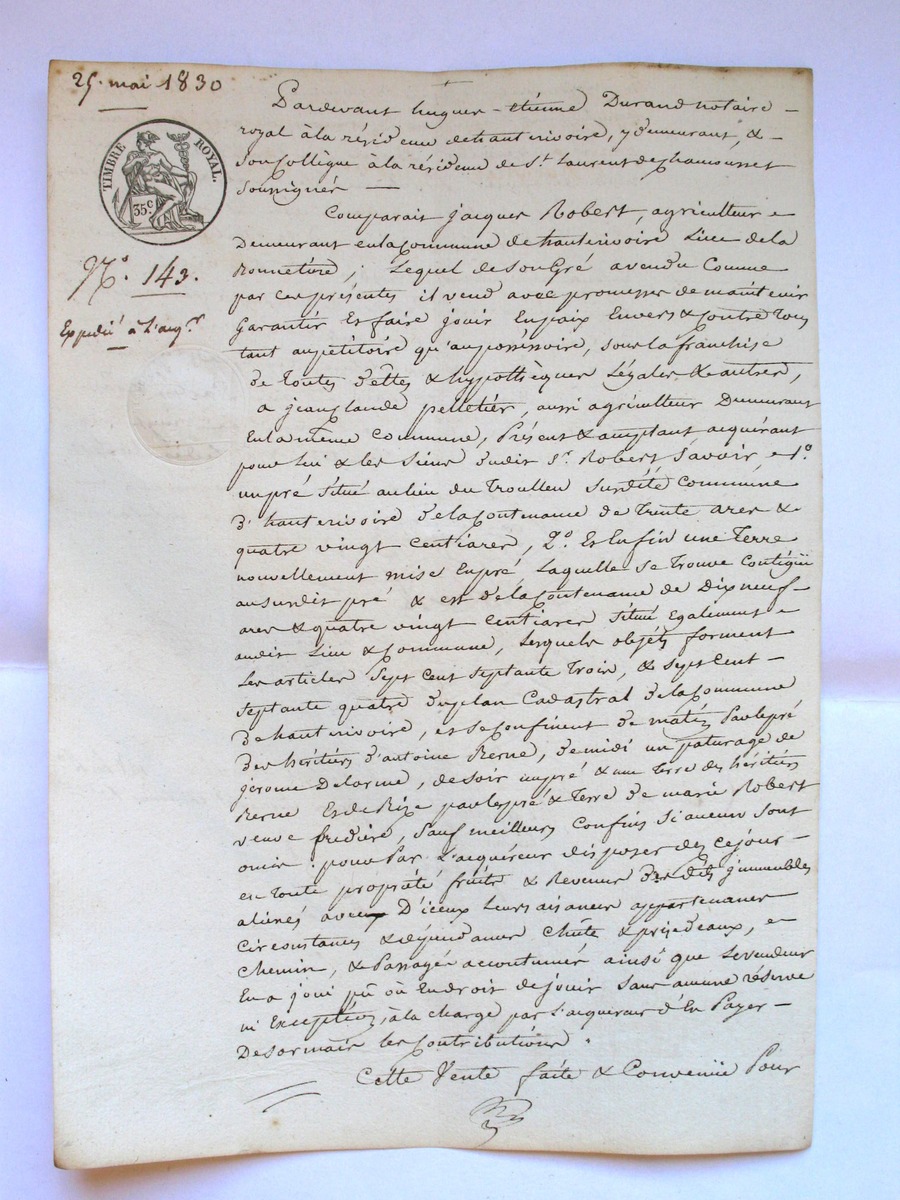 25. mai 1830
TIMBRE ROYAL.
35c.
N.° 143.
Expedié à L'aq.r
Pardevant hugues-étienne Durand notaire
royal à la résidence de haut rivoire, y demeurant, &
son Collègue à la résidence de St. Laurent de chamousset
soussignés —
Comparait jacques Robert, agriculteur
Demeurant en la Commune de hauterivoire Lieu de la
Ronnetière, Lequel de Son Gré a vendu Comme
par ces présentes il vend avec promesses de maintenir
Garantir Et faire jouir En paix Envers & Contre tous
tant au pétitoire qu'au possessoire, sous la franchise
de toutes dettes & hypothèques Légales & autres,
a jean Claude pelletier, aussi agriculteur Demeurant
En la même Commune, Présent & acceptant acquérant
pour Lui & les Siens dudit Sr. Robert Savoir, 1.°
un pré Situé au lieu du Troulleu Surdité Commune
d'haut rivoire de la Contenance de Trente ares &
quatre vingt Centiares, 2.° Et Enfin une Terre
nouvellement mise En pré Laquelle Se Trouve Contigüe
au Surdit pré & est de la Contenance de Dix neuf
ares & quatre vingt Centiares Situé Egalement
audit Lieu & Commune, Lesquels objets forment
Les articles Sept Cent Septante Trois, & Sept Cent
Septante quatre du plan Cadastral de la Commune
de haut rivoire, et se Confinent de matin Par le pré
des héritiers d'antoine Berne, de midi un paturage de
jerome Delorme, de soir un pré & une Terre des héritiers
Berne Et de Bize par les pré & Terre de marie Robert
veuve fredière, Sauf meilleurs Confins Si aucuns Sont
omis : pour Par L'acquéreur disposer dès ce jour
en toute propriété fruits & Revenus des dits jmmeubles
aliénés avec D'iceux Leurs aisances appartenances
Circonstances & dépendances Chûte & prise d'eaux,
Chemin, & Passage accoutumés ainsi que Le vendeur
En a joui pû où En droit de jouir Sans aucune réserve
ni Exception, à la charge par L'acquereur d'En Payer
Desormais les Contributions.
Cette Vente faite & Convenüe Pour